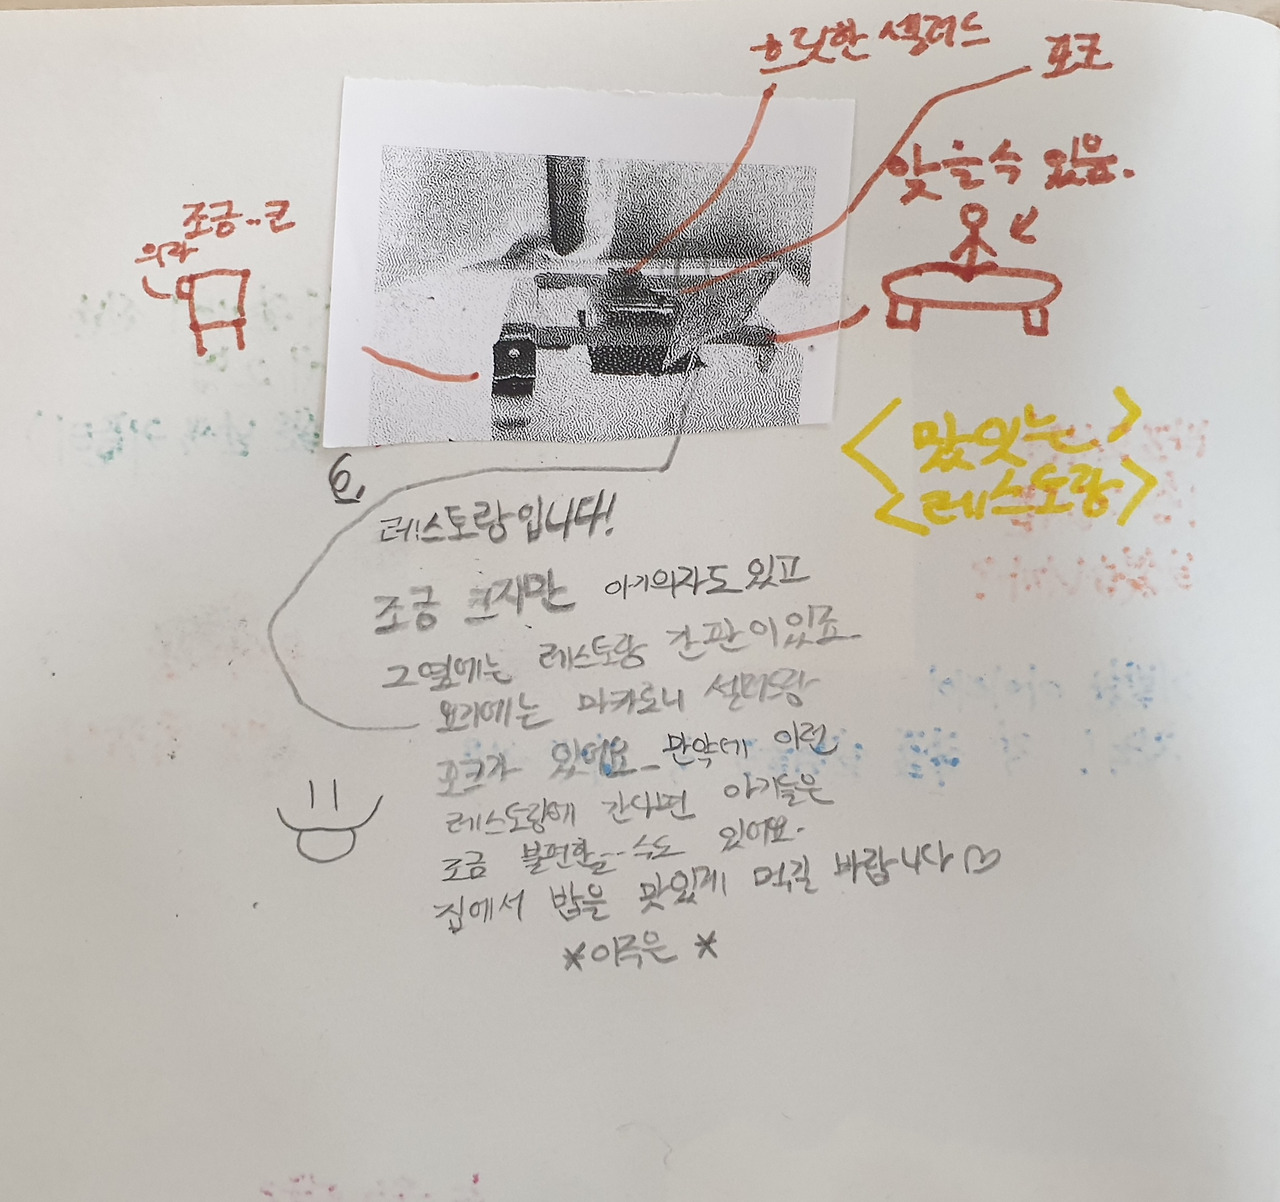 흐릿한 셀러드
포크
앚을수 있음.
조금..큰
의자
<맜잇는>
<레스토랑>
6.
레스토랑입니다!
조금 크지만 아기의자도 있고
그 옆에는 레스토랑 간판이있죠
요기에는 마카로니 셀러드랑
포크가 있어요 만약에 이런
레스토랑에 간다면 아기들은
조금 불편할... 수도 있어요.
집에서 밥을 맛있게 먹길 바랍니다 ♡
*이주은*